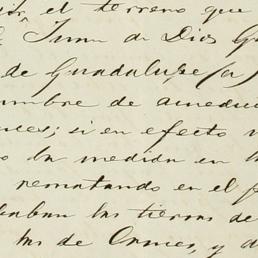 el terreno que
Juan de Dios
de Guadalupe (a)
de
; si en efecto
la medida en
rematando en el
las tierras de
de Ornes, y